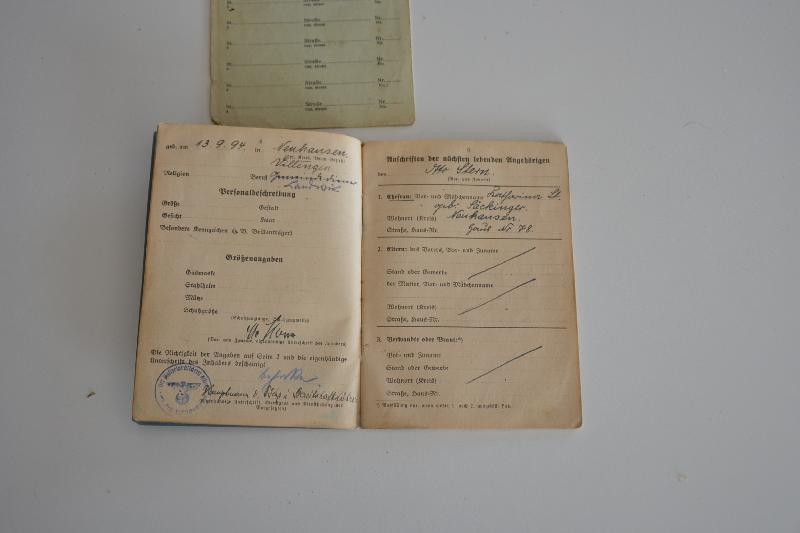 Straße
Nr.
Straße
Nr.
Straße
Nr.
Straße
Nr.
Straße
Nr.
geb. am 13.9.94. in Neuhausen
Villingen
Religion Beruf
Landwirt
Personalbeschreibung
Größe Gestalt
Gesicht Haar
Besondere Kennzeichen (z. B. Brillenträger)
Größenangaben
Gasmaske
Stahlhelm
Mütze
Schuhgröße
Otto Stern
Die Richtigkeit der Angaben auf Seite 2 und die eigenhändige
Unterschrift des Inhabers bescheinigt
Hauptmann d.
6
Anschriften der nächsten lebenden Angehörigen
des Otto Stern.
(Vor- und Zuname)
1. Ehefrau: Vor- und Mädchenname Katharina St.
geb. Säckinger.
Wohnort (Kreis) Neuhausen.
Straße, Haus-Nr. Haus Nr. 78.
2. Eltern: des Vaters, Vor- und Zuname
Stand oder Gewerbe
der Mutter, Vor- und Mädchenname
Wohnort (Kreis)
Straße, Haus-Nr.
3. Verwandte oder Braut:*)
Vor- und Zuname
Stand oder Gewerbe
Wohnort (Kreis)
Straße, Haus-Nr.
*) Ausfüllung nur, wenn weder 1. noch 2. ausgefüllt sind.